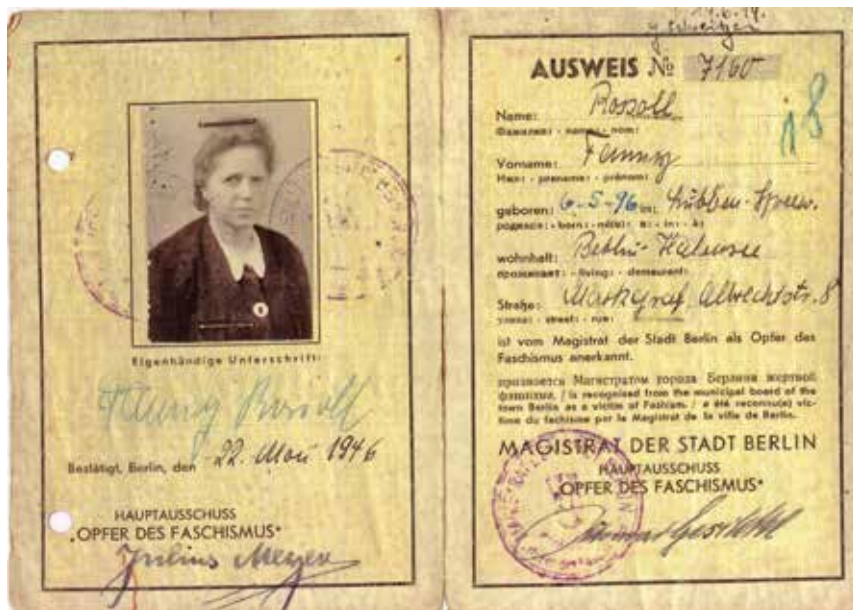 Eigenhändige Unterschrift:
Fanny Rosoll
Bestätigt, Berlin, den 22. Mai 1946
HAUPTAUSSCHUSS
„OPFER DES FASCHISMUS"
Julius Meyer
AUSWEIS № 7160
18
Name: Rosoll
Фамилия: - name: - nom:
Vorname: Fanny
Имя: - prename: - prénom:
geboren: 6-5-96 in: Lübben-Spreew.
wohnhaft: Berlin-Halensee
проживает: - living: - demeurant:
Straße: Markgraf Albrechtstr. 8
улица: - street: - rue:
ist vom Magistrat der Stadt Berlin als Opfer des
Faschismus anerkannt.
признается Магистратом города Берлина жертвой
фашизма. / is recognised from the municipal board of the
town Berlin as a victim of Fashism. / a été reconnu(e) vic-
time du fachisme par le Magistrat de la ville de Berlin.
MAGISTRAT DER STADT BERLIN
HAUPTAUSSCHUSS
"OPFER DES FASCHISMUS"